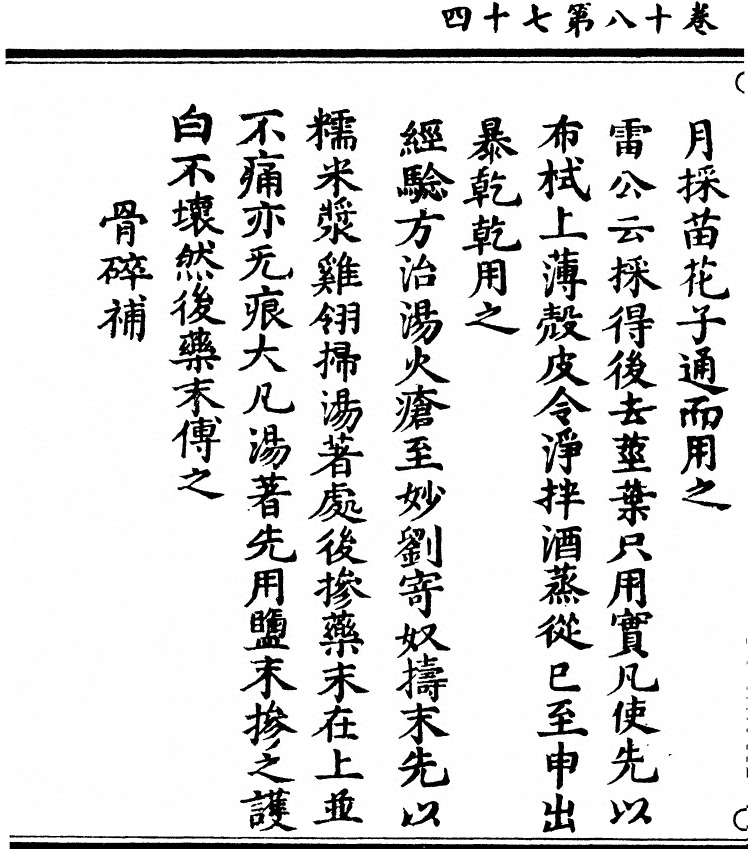 卷十八第七十四
月採苗花子通而用之
雷公云採得後去莖葉只用實凡使先以
布栻上薄殼皮令淨拌酒蒸從巳至申出
暴乾乾用之
經驗方治湯火瘡至妙劉寄奴擣末先以
糯米漿雞翎掃湯著處後摻藥末在上並
不痛亦无痕大凡湯著先用鹽末摻之護
白不壞然後藥末傅之
骨碎補